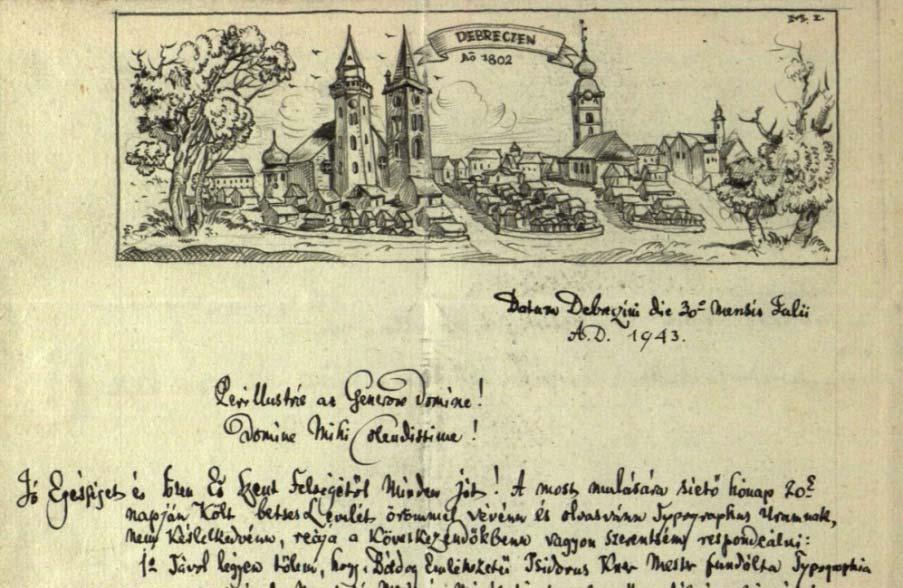 DEBRECZEN
Aō 1802
M. Z.
Datum Debrczini die 30ª Mensis Julii
A.D. 1943.
Perillustris ac Generose Domine!
Domine Mihi Colendissime!
Jó Egésséget és Isten Eő Szent Felségétől Minden jót! A most mulására siető hónap 20ª
napján Költ betses Levelét örömmel vévénn és olvasvánn Typographus Uramnak,
nem Késlelkedvénn, reája a Következendőkbenn vagyon szerentsém respondeálni:
1º Távol légyen tőlem, hogy Bóldog Emlékezetű Isidorus Kner Mester fundálta Typographia